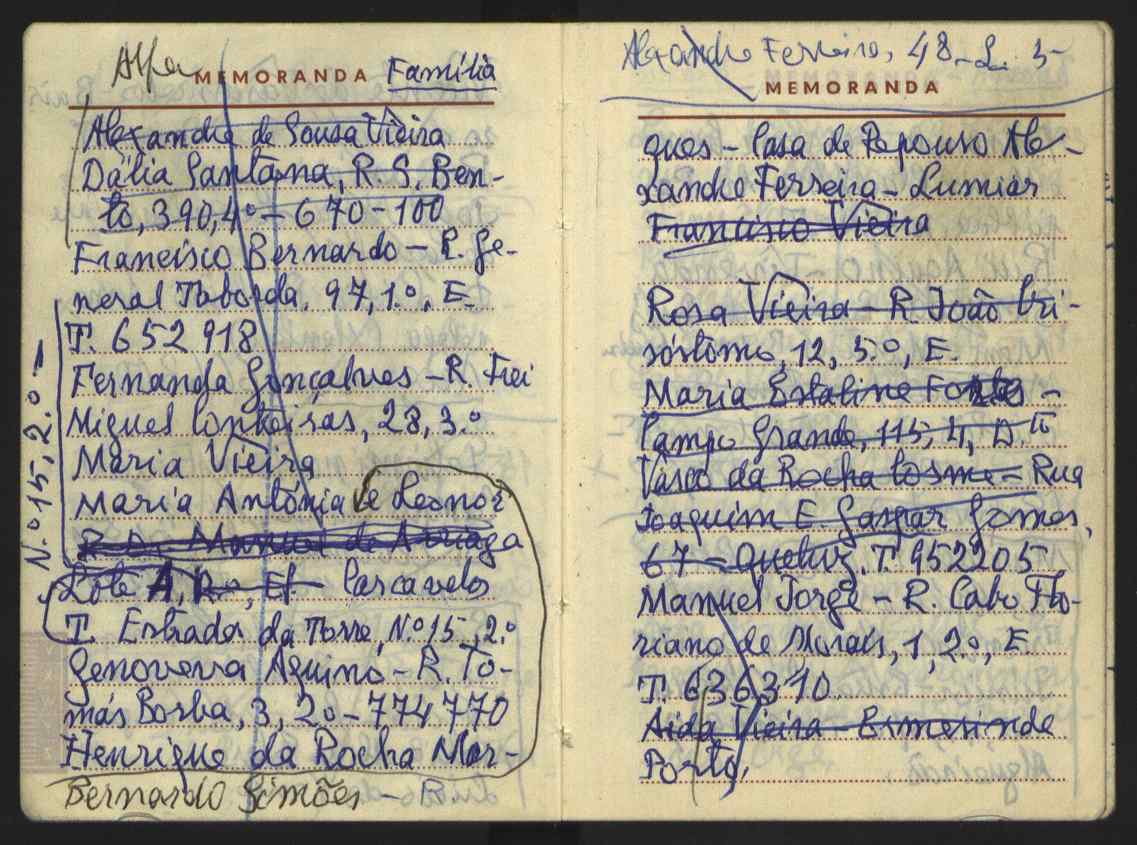 Alfa MEMORANDA Família
Alexandre de Sousa Vieira
Dália Santana, R. S. Ben-
to, 390, 4º - 670-100
Francisco Bernardo - R. Ge-
neral Taborda, 97, 1.º, E.
T. 652918
Fernanda Gonçalves - R. Frei
Miguel Contreiras, 28, 3.º
Maria Vieira
Maria Antónia e Leonor
R. Dr. Manuel de Arriaga
Lote A, Cascavelos
T. Estrada da Torre, N.º 15, 2.º
Genoveva Aquino - R. To-
más Borba, 3, 2.º - 774770
Henrique da Rocha Mar-
Bernardo Simões -
N.º 15, 2.º -
Alexandre Ferreira, 48 - L. 3-
MEMORANDA
ques - Casa de Repouso Ale-
xandre Ferreira - Lumiar
Francisco Vieira
Rosa Vieira - R. João Cri-
sóstomo, 12, 5.º, E.
Maria Estaline Fontes -
Campo Grande, 115, 4, D.to
Vasco da Rocha Cosme - Rua
Joaquim E. Gaspar Gomes,
67 - Queluz. T. 952205
Manuel Jorge - R. Cabo Flo-
riano de Morais, 1, 2.º, E
T. 636310
Aida Vieira - Ermesinde
Porto,